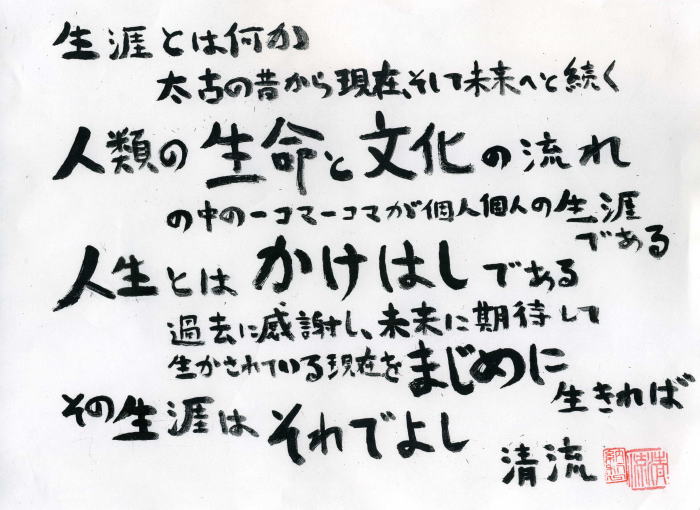 生涯とは何か
太古の昔から現在、そして未来へと続く
人類の生命と文化の流れ
の中の一コマ一コマが個人個人の生涯
である
人生とはかけはしである
過去に感謝し、未来に期待して
生かされている現在をまじめに
生きれば
その生涯はそれでよし
清流